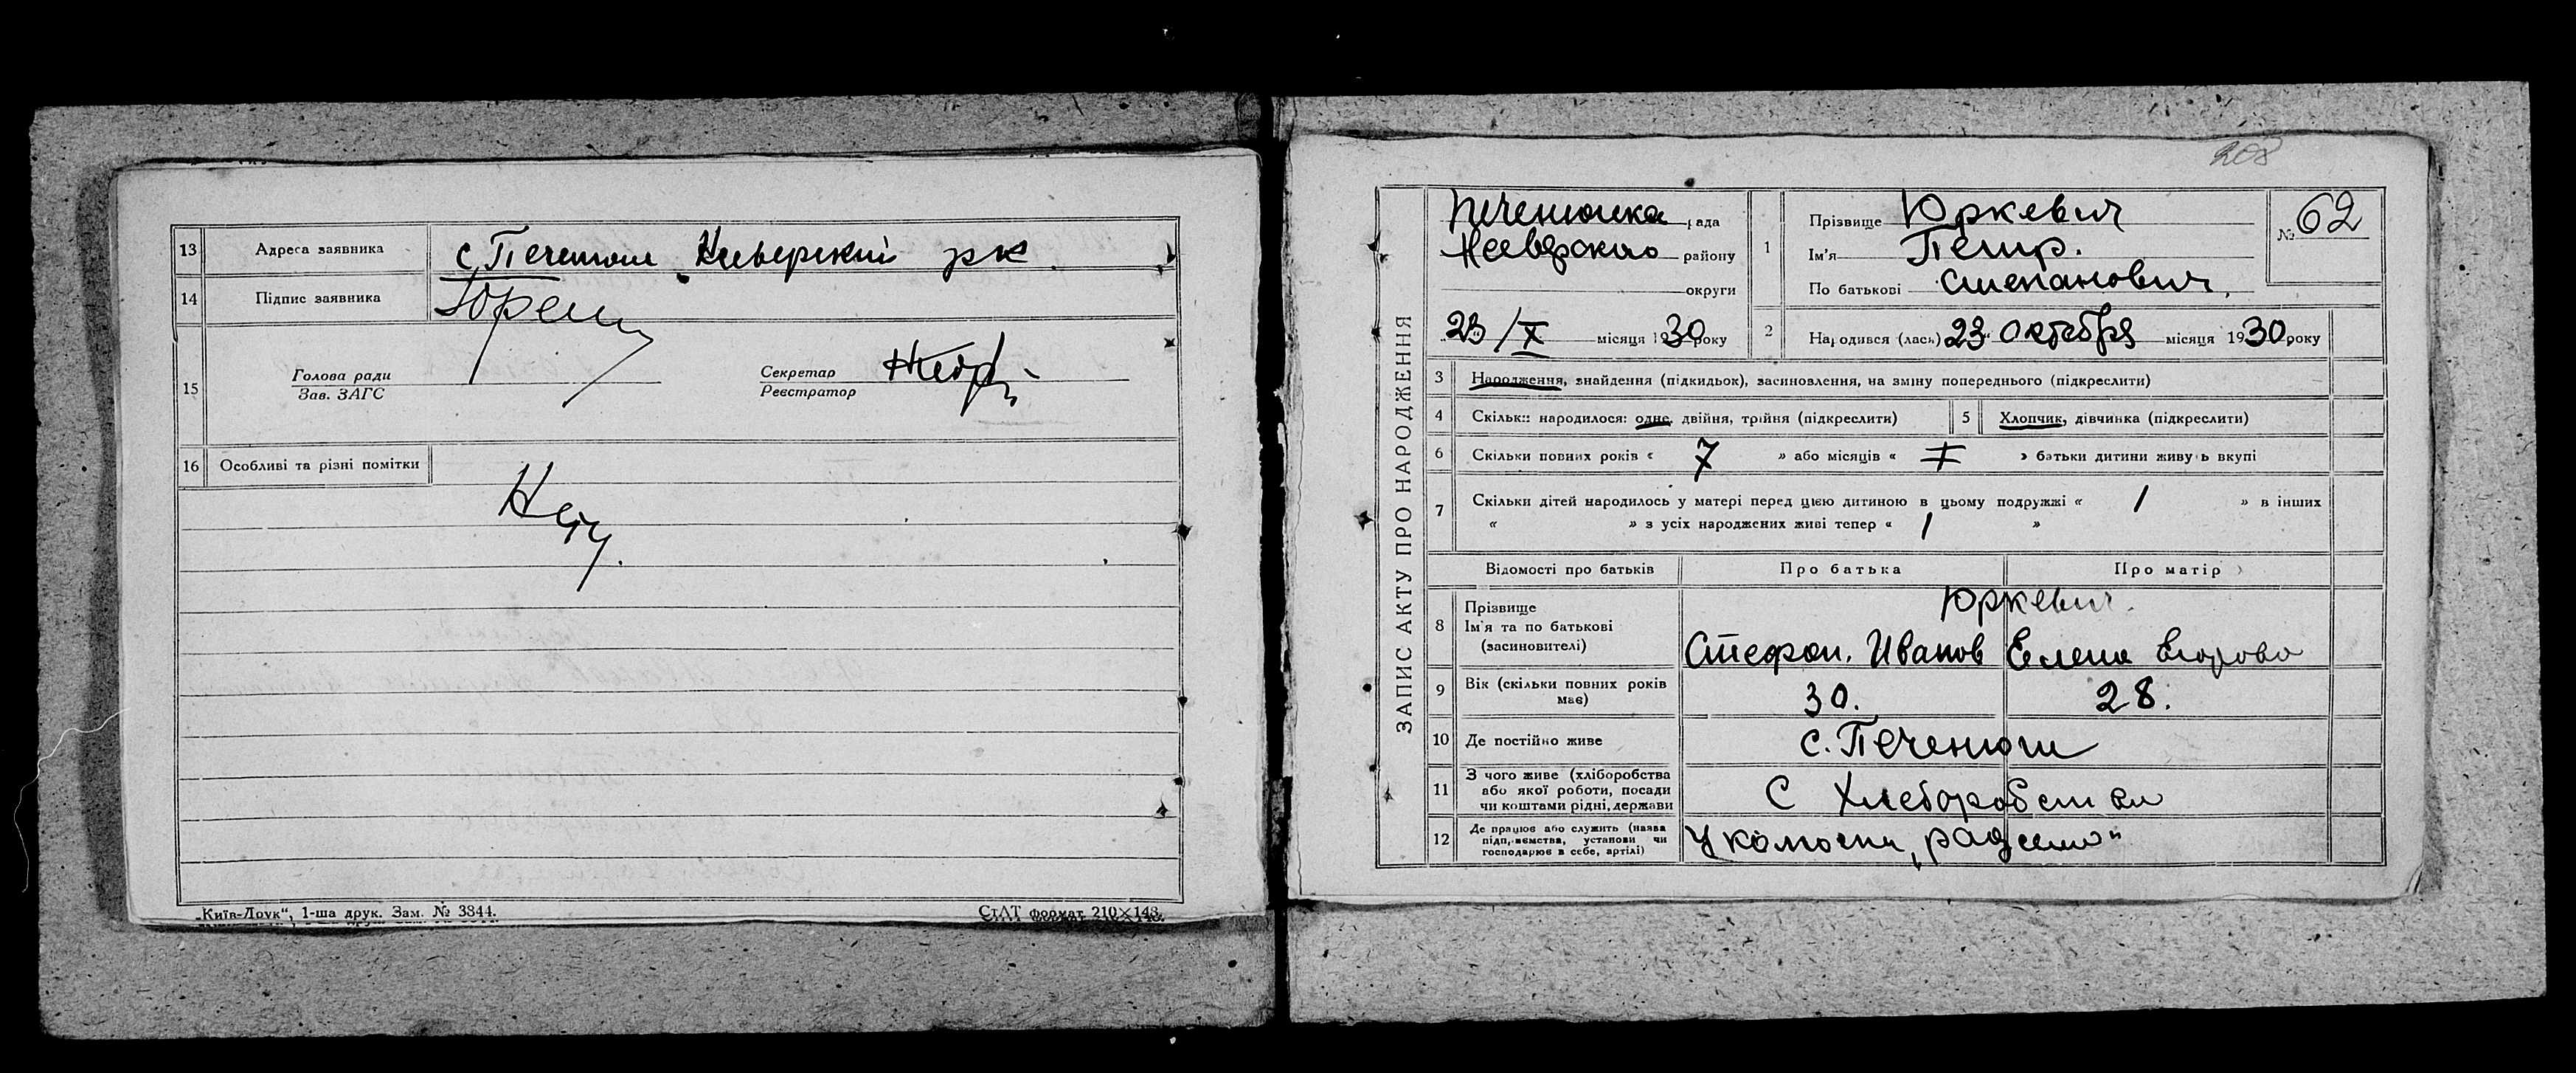 13 Адреса заявника с. Печенюги Н.-Сіверский р-к
14 Підпис заявника
15 Голова ради Секретар
Зав. ЗАГС Реєстратор
16 Особливі та різні помітки
Нету.
„Київ-Друк“, 1-ша друк. Зам. № 3844. СтАТ формат 210×148.
208
ЗАПИС АКТУ ПРО НАРОДЖЕННЯ
рада
району
округи
23/X місяця 1930 року
1 Прізвище Юркевич
Ім'я Петр.
По батькові Степанович.
№ 62
2 Народився (лась) „23“ Октября місяця 1930 року
3 Народження, знайдення (підкидьок), засиновлення, на зміну попереднього (підкреслити)
4 Скільки народилося: одне, двійня, трійня (підкреслити) 5 Хлопчик, дівчинка (підкреслити)
6 Скільки повних років « 7 » або місяців « » батьки дитини живуть вкупі
7 Скільки дітей народилось у матері перед цією дитиною в цьому подружжі « 1 » в інших
« » з усіх народжених живі тепер « 1 »
Відомості про батьків Про батька Про матір
8 Прізвище Юркевич.
Ім'я та по батькові
(засиновителі) Стефан. Иванов Елена Егорова
9 Вік (скільки повних років
має) 30. 28.
10 Де постійно живе с. Печенюги
11 З чого живе (хліборобства
або якої роботи, посади
чи коштами рідні, держави С Хлеборобства
12 Де працює або служить (назва
підприємства, установи чи
господарює в себе, артілі)